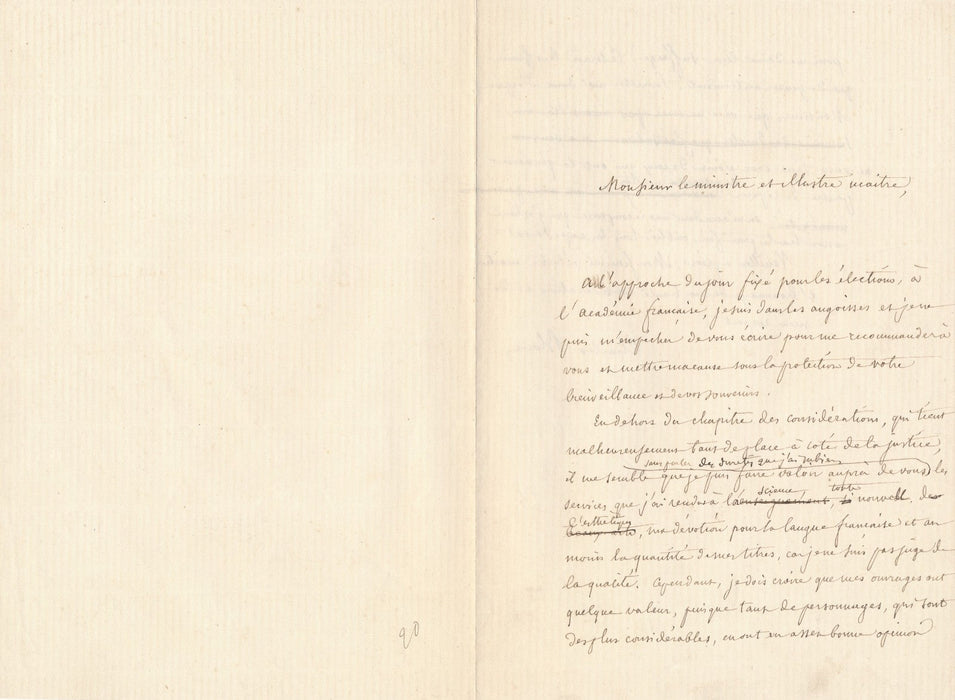 Monsieur le ministre et illustre maître,
A l'approche du jour fixé pour les élections, à
l'académie française, je suis dans les angoisses et je ne
puis m'empêcher de vous écrire pour me recommander à
vous et mettre ma cause sous la protection de votre
bienveillance et de vos souvenirs.
En dehors du chapitre des considérations, qui tient
malheureusement tant de place à coté de la justice,
sans parler des duretés que j'ai subies
il me semble que je puis faire valoir auprès de vous les
science, toute
services que j'ai rendus à la enseignement, si nouvelle de
l'esthétique
beaux-arts, ma dévotion pour la langue française et au
moins la quantité de mes titres, car je ne suis pas juge de
la qualité. Cependant, je dois croire que mes ouvrages ont
quelque valeur, puisque tant de personnages, qui sont
des plus considérables, en ont en assez bonne opinion
90